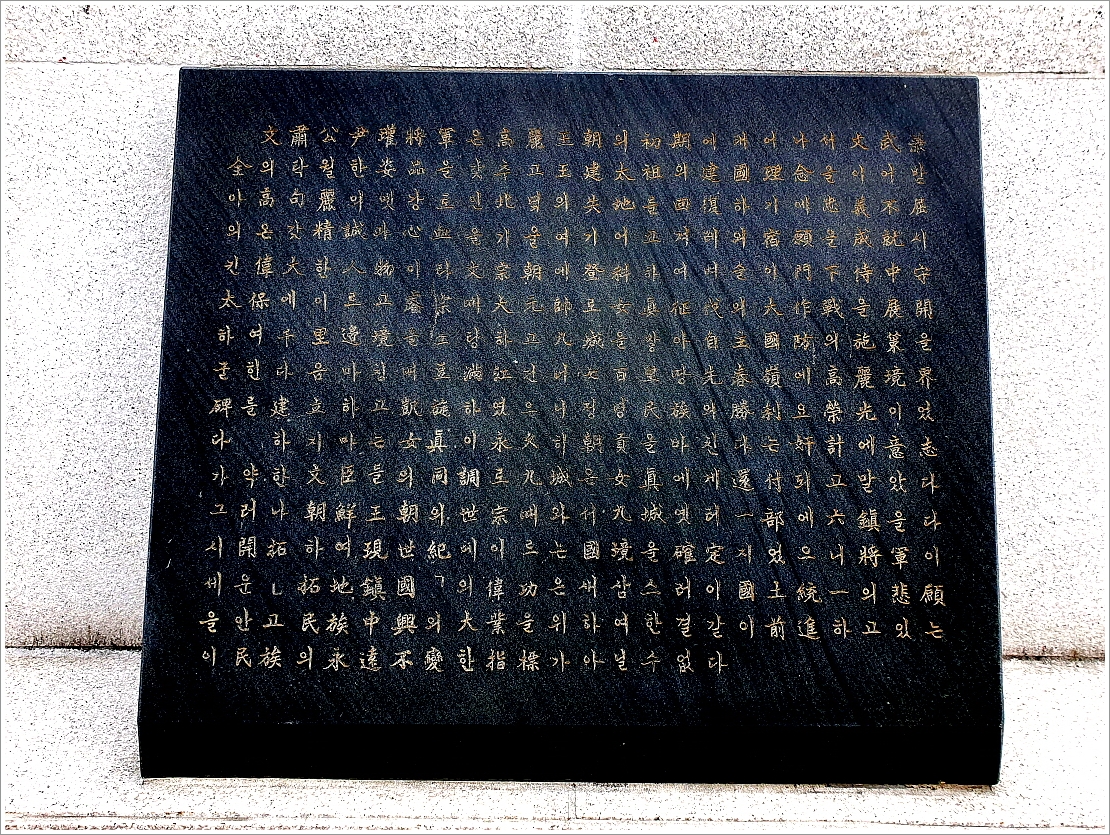 文肅公尹瓘將軍은高麗王朝의初期에태어나서文武兼
全의탁월한姿品을갖추고王建太祖의建國理念을이어받
아高句麗의옛강토인北녘의失地를回復하기에忠義不屈
의온갖精誠과心血을기울여기어코겨레의宿願을成就시
긴偉大한人物이다文宗朝에登科하여벼슬이門下侍中守
太保에이르고睿宗때元師로女眞征伐의大作戰을展開
하여千里邊境을하고九城을쌓아自主國防의施策을
굳힌다음마침내女眞땅先春嶺에高麗境界
碑를建立하고凱旋하였으니民族의勝利오榮光이었
다하지마는女眞이永久히朝貢을奸計에말意志
가약한文臣들의同調로九城은女眞에게還付되고말았다
그러나朝鮮王朝世宗때와서九城옛터一部에六鎭을다
시開拓하여現世紀에이르는國境을確定지었으니將軍이
세운「拓地鎭國」의偉功은새삼스러이國土統一의悲願
을안고民族中興의大業을위하여한결같이前進하고있는
이民族의永遠不變한指標가아닐수없다